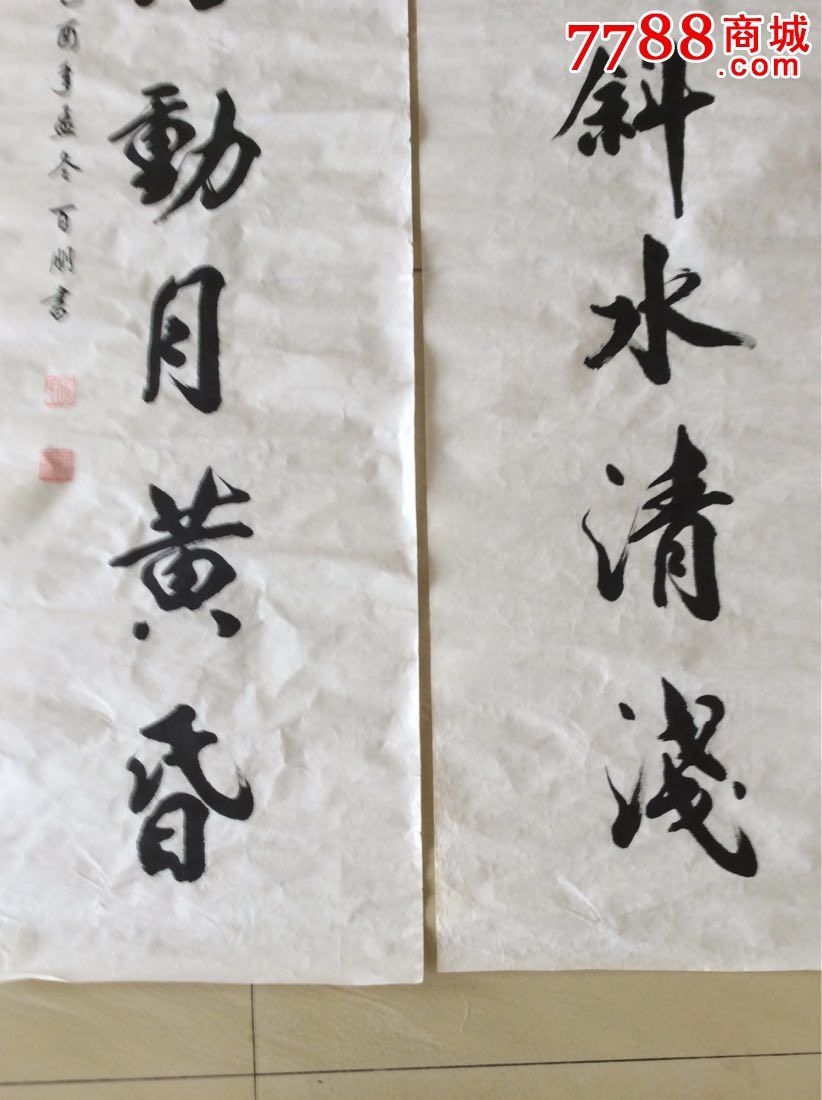 7788商城
.com
斜水清淺
動月黄昏
酉年孟冬百朋書